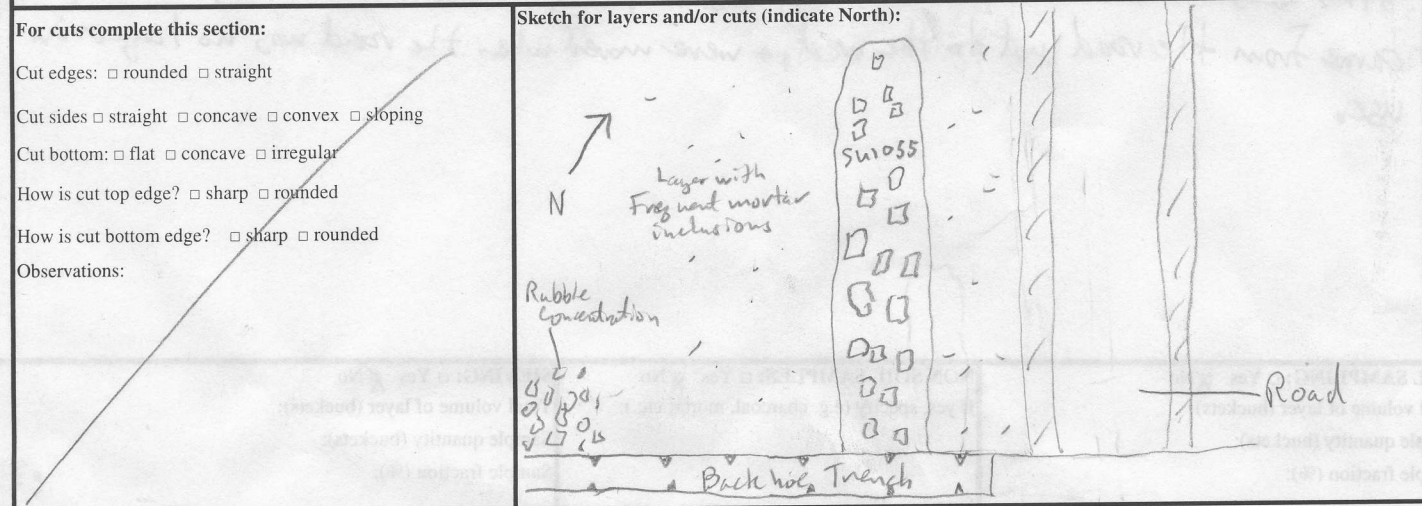 For cuts complete this section:
Cut edges: □ rounded □ straight
Cut sides □ straight □ concave □ convex □ sloping
Cut bottom: □ flat □ concave □ irregular
How is cut top edge? □ sharp □ rounded
How is cut bottom edge? □ sharp □ rounded
Observations:
Sketch for layers and/or cuts (indicate North):
N
Layer with
Frequent mortar
inclusions
SU1055
Rubble
Concentration
Road
Backhoe Trench